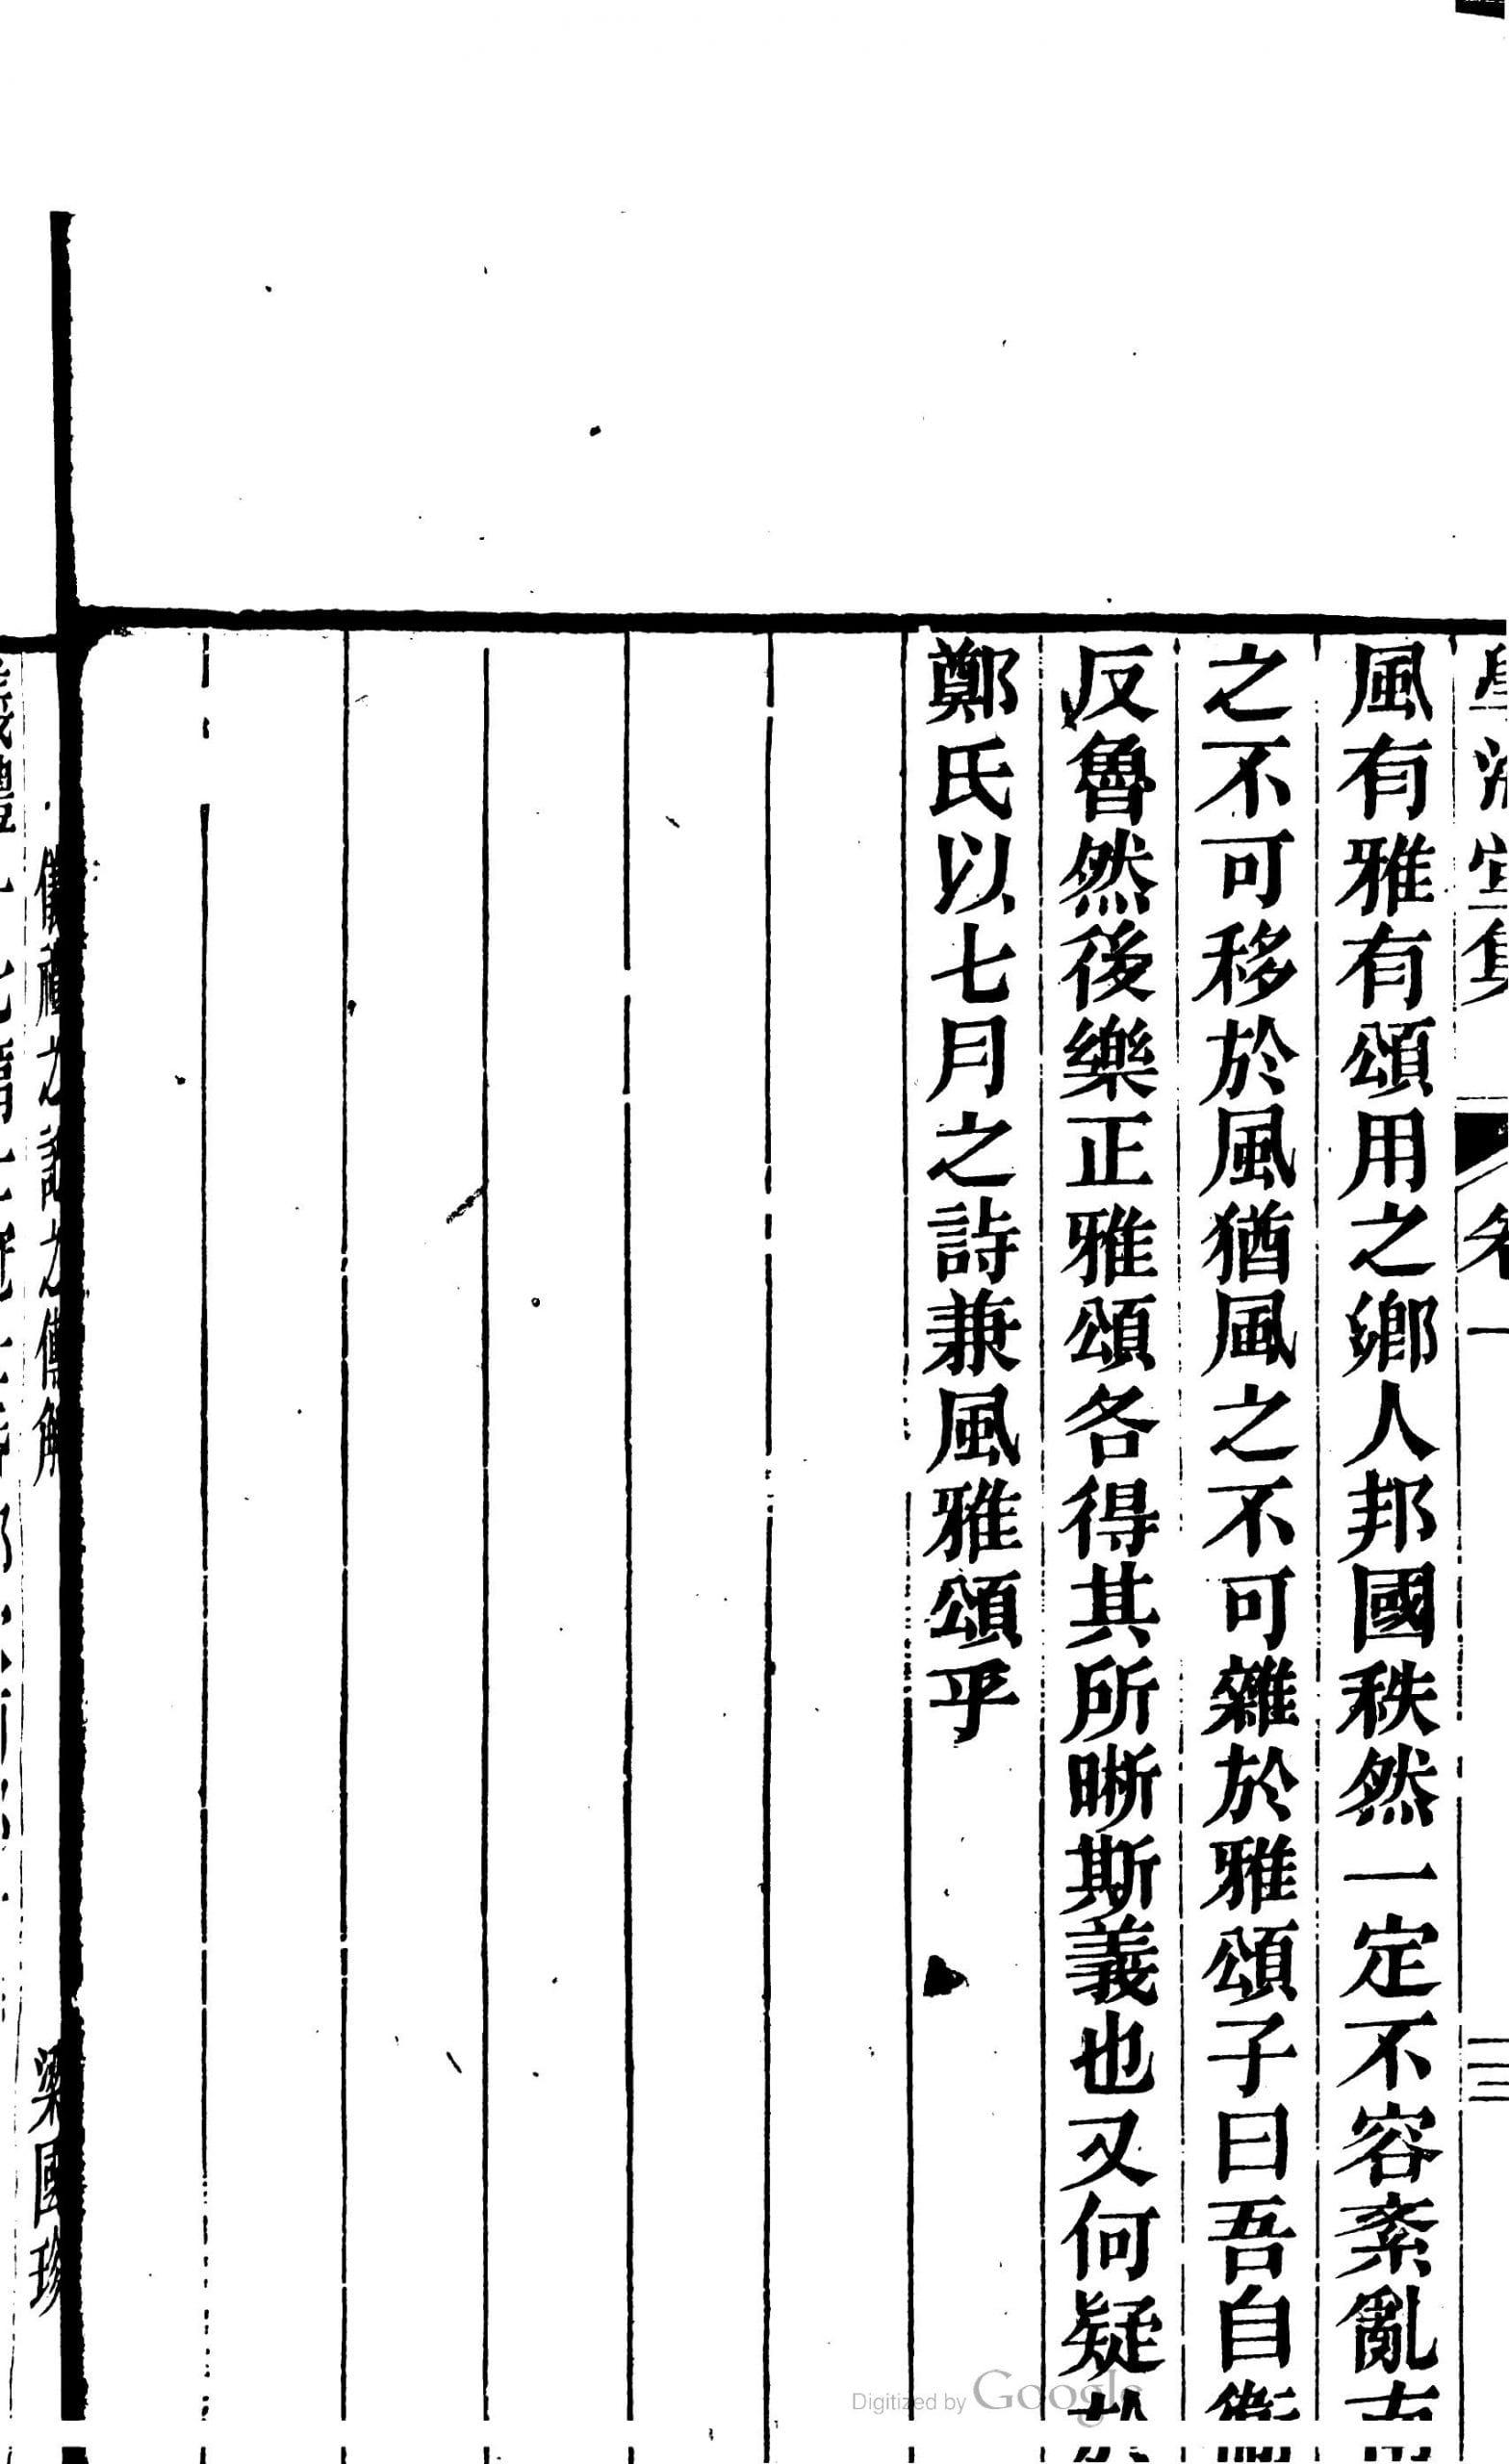 風有雅有頌用之鄉人邦國秩然一定不容紊亂
之不可移於風猶風之不可雜於雅頌子曰吾自衞
反魯然後樂正雅頌各得其所晰斯義也又何疑
鄭氏以七月之詩兼風雅頌乎
儀禮之記之傳解 梁國珍
Digitized by Google